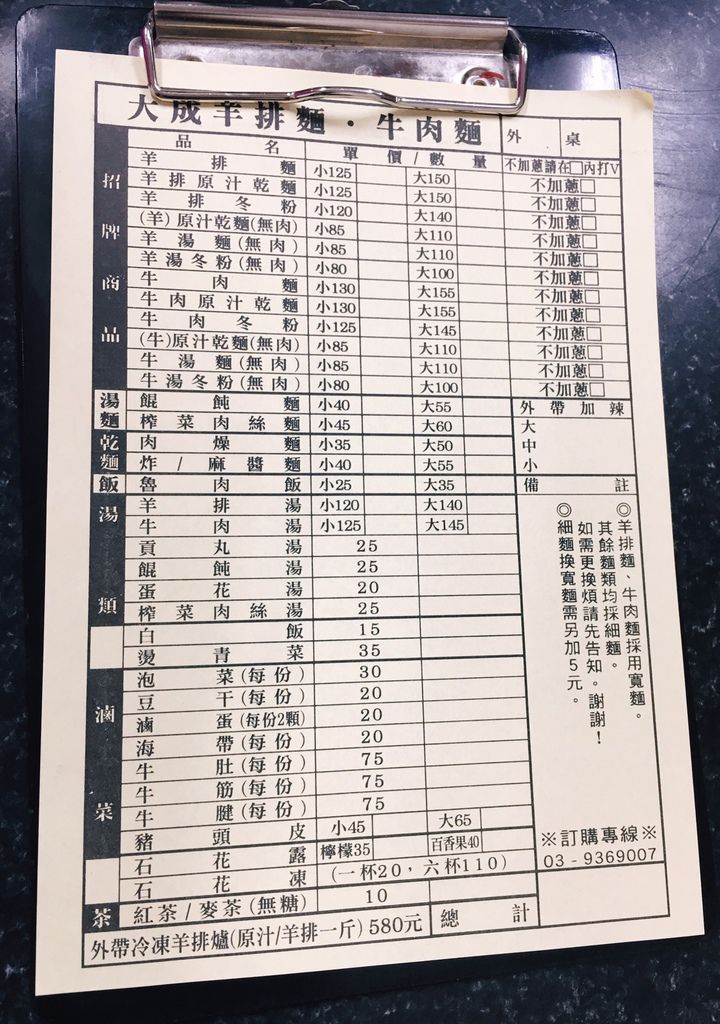 大成羊排麵・牛肉麵 外 桌
品名 單價/數量 不加蔥請在□內打V
招牌商品
羊排麵 小125 大150 不加蔥□
羊排原汁乾麵 小125 大150 不加蔥□
羊排冬粉 小120 大140 不加蔥□
(羊)原汁乾麵(無肉) 小85 大110 不加蔥□
羊湯麵(無肉) 小85 大110 不加蔥□
羊湯冬粉(無肉) 小80 大100 不加蔥□
牛肉麵 小130 大155 不加蔥□
牛肉原汁乾麵 小130 大155 不加蔥□
牛肉冬粉 小125 大145 不加蔥□
(牛)原汁乾麵(無肉) 小85 大110 不加蔥□
牛湯麵(無肉) 小85 大110 不加蔥□
牛湯冬粉(無肉) 小80 大100 不加蔥□
湯麵
餛飩麵 小40 大55
榨菜肉絲麵 小45 大60
乾麵
肉燥麵 小35 大50
炸/麻醬麵 小40 大55
飯
魯肉飯 小25 大35
湯類
羊排湯 小120 大140
牛肉湯 小125 大145
貢丸湯 25
餛飩湯 25
蛋花湯 20
榨菜肉絲湯 25
白飯 15
燙青菜 35
滷菜
泡菜(每份) 30
豆干(每份) 20
滷蛋(每份2顆) 20
海帶(每份) 20
牛肚(每份) 75
牛筋(每份) 75
牛腱(每份) 75
豬頭皮 小45 大65
石花露 檸檬35 百香果40
石花凍 (一杯20，六杯110)
茶
紅茶/麥茶(無糖) 10
外帶冷凍羊排爐(原汁/羊排一斤)580元 總計
外帶加辣
大
中
小
備註
◎羊排麵、牛肉麵採用寬麵。
其餘麵類均採細麵。
如需更換煩請先告知。謝謝！
◎細麵換寬麵需另加5元。
※訂購專線※
03-9369007